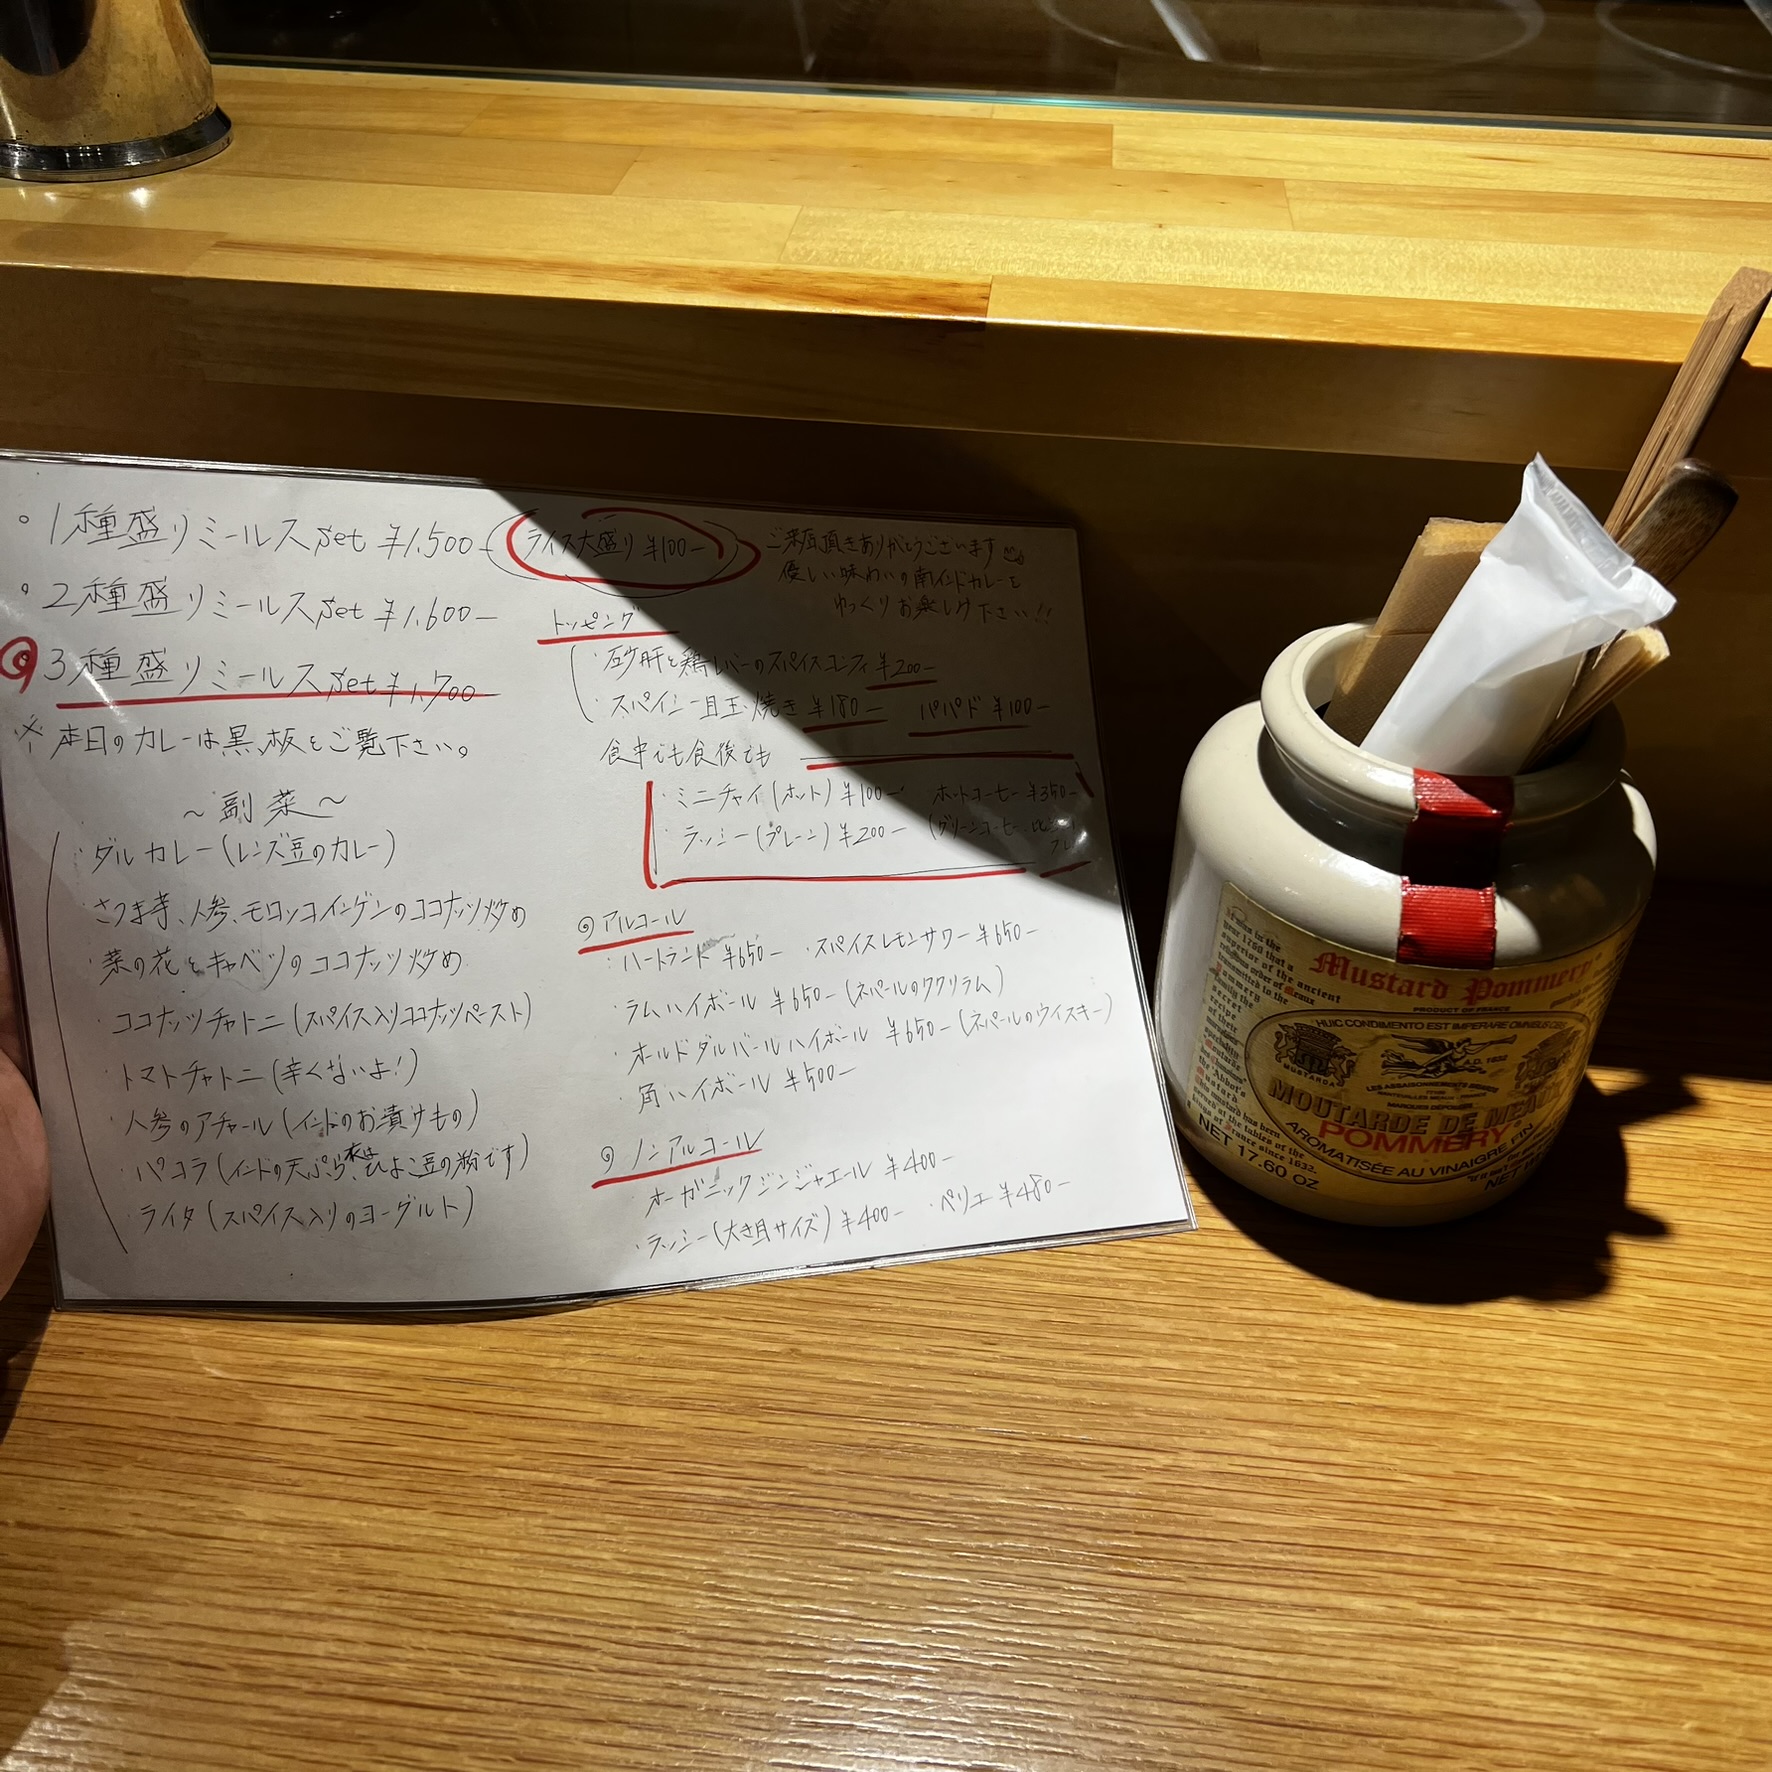 ・1種盛りミールスset ¥1,500-
・2種盛りミールスset ¥1,600-
3種盛りミールスset ¥1,700
※本日のカレーは黒板をご覧下さい。
～副菜～
・ダルカレー(レンズ豆のカレー)
・さつま芋、人参、モロッコインゲンのココナッツ炒め
・菜の花とキャベツのココナッツ炒め
・ココナッツチャトニ(スパイス入りココナッツペースト)
・トマトチャトニ(辛くないよ!)
・人参のアチャール(インドのお漬けもの)
・パコラ(インドの天ぷら、衣はひよこ豆の粉です)
・ライタ(スパイス入りのヨーグルト)
ライス大盛り ¥100-
ご来店頂きありがとうございます
優しい味わいの南インドカレーを
ゆっくりお楽しみ下さい!!
トッピング
・砂肝と鶏レバーのスパイスコンフィ ¥200-
・スパイシー目玉焼き ¥180- パパド ¥100-
食中でも食後でも
・ミニチャイ(ホット) ¥100- ホットコーヒー ¥350-
・ラッシー(プレーン) ¥200- (グリーンコーヒー
アルコール
・ハートランド ¥650- ・スパイスレモンサワー ¥650-
・ラムハイボール ¥650-(ネパールのククリラム)
・オールドダルバールハイボール ¥650-(ネパールのウイスキー)
・角ハイボール ¥500-
ノンアルコール
・オーガニックジンジャエール ¥400-
・ラッシー(大き目サイズ) ¥400- ・ペリエ ¥480-
Mustard Pommery
PRODUCT OF FRANCE
HUIC CONDIMENTO EST IMPERARE OMNIBUS
A.D. 1632
MUSTARDA
MOUTARDE DE MEAUX
POMMERY
AROMATISÉE AU VINAIGRE FIN
NET 17.60 OZ